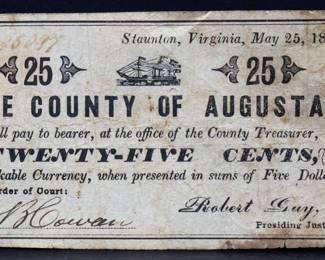 Staunton, Virginia, May 25, 18
25 25
E COUNTY OF AUGUSTA
ll pay to bearer, at the office of the County Treasurer,
TWENTY-FIVE CENTS,
kable Currency, when presented in sums of Five Dolla
rder of Court:
Robert Guy,
Cowan
Presiding Just